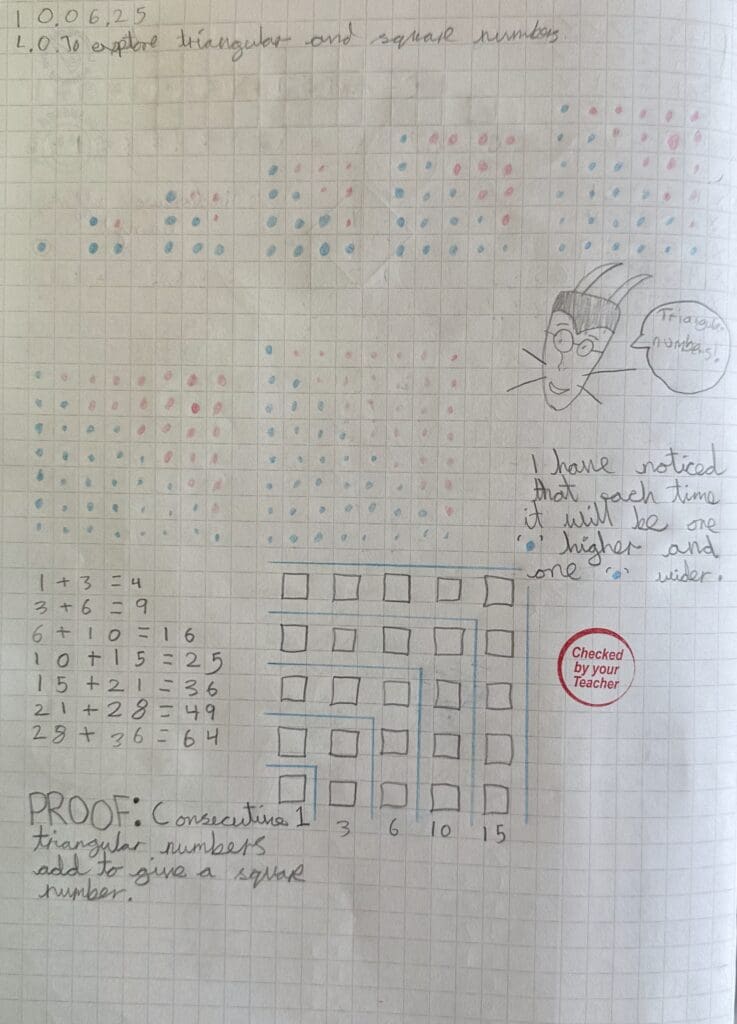 10.06.25
L.O. To explore triangular and square numbers.
Triangular
numbers!
I have noticed
that each time
it will be one
'•' higher and
one '•' wider.
1 + 3 = 4
3 + 6 = 9
6 + 10 = 16
10 + 15 = 25
15 + 21 = 36
21 + 28 = 49
28 + 36 = 64
Checked
by your
Teacher
1 3 6 10 15
PROOF: Consecutive
triangular numbers
add to give a square
number.